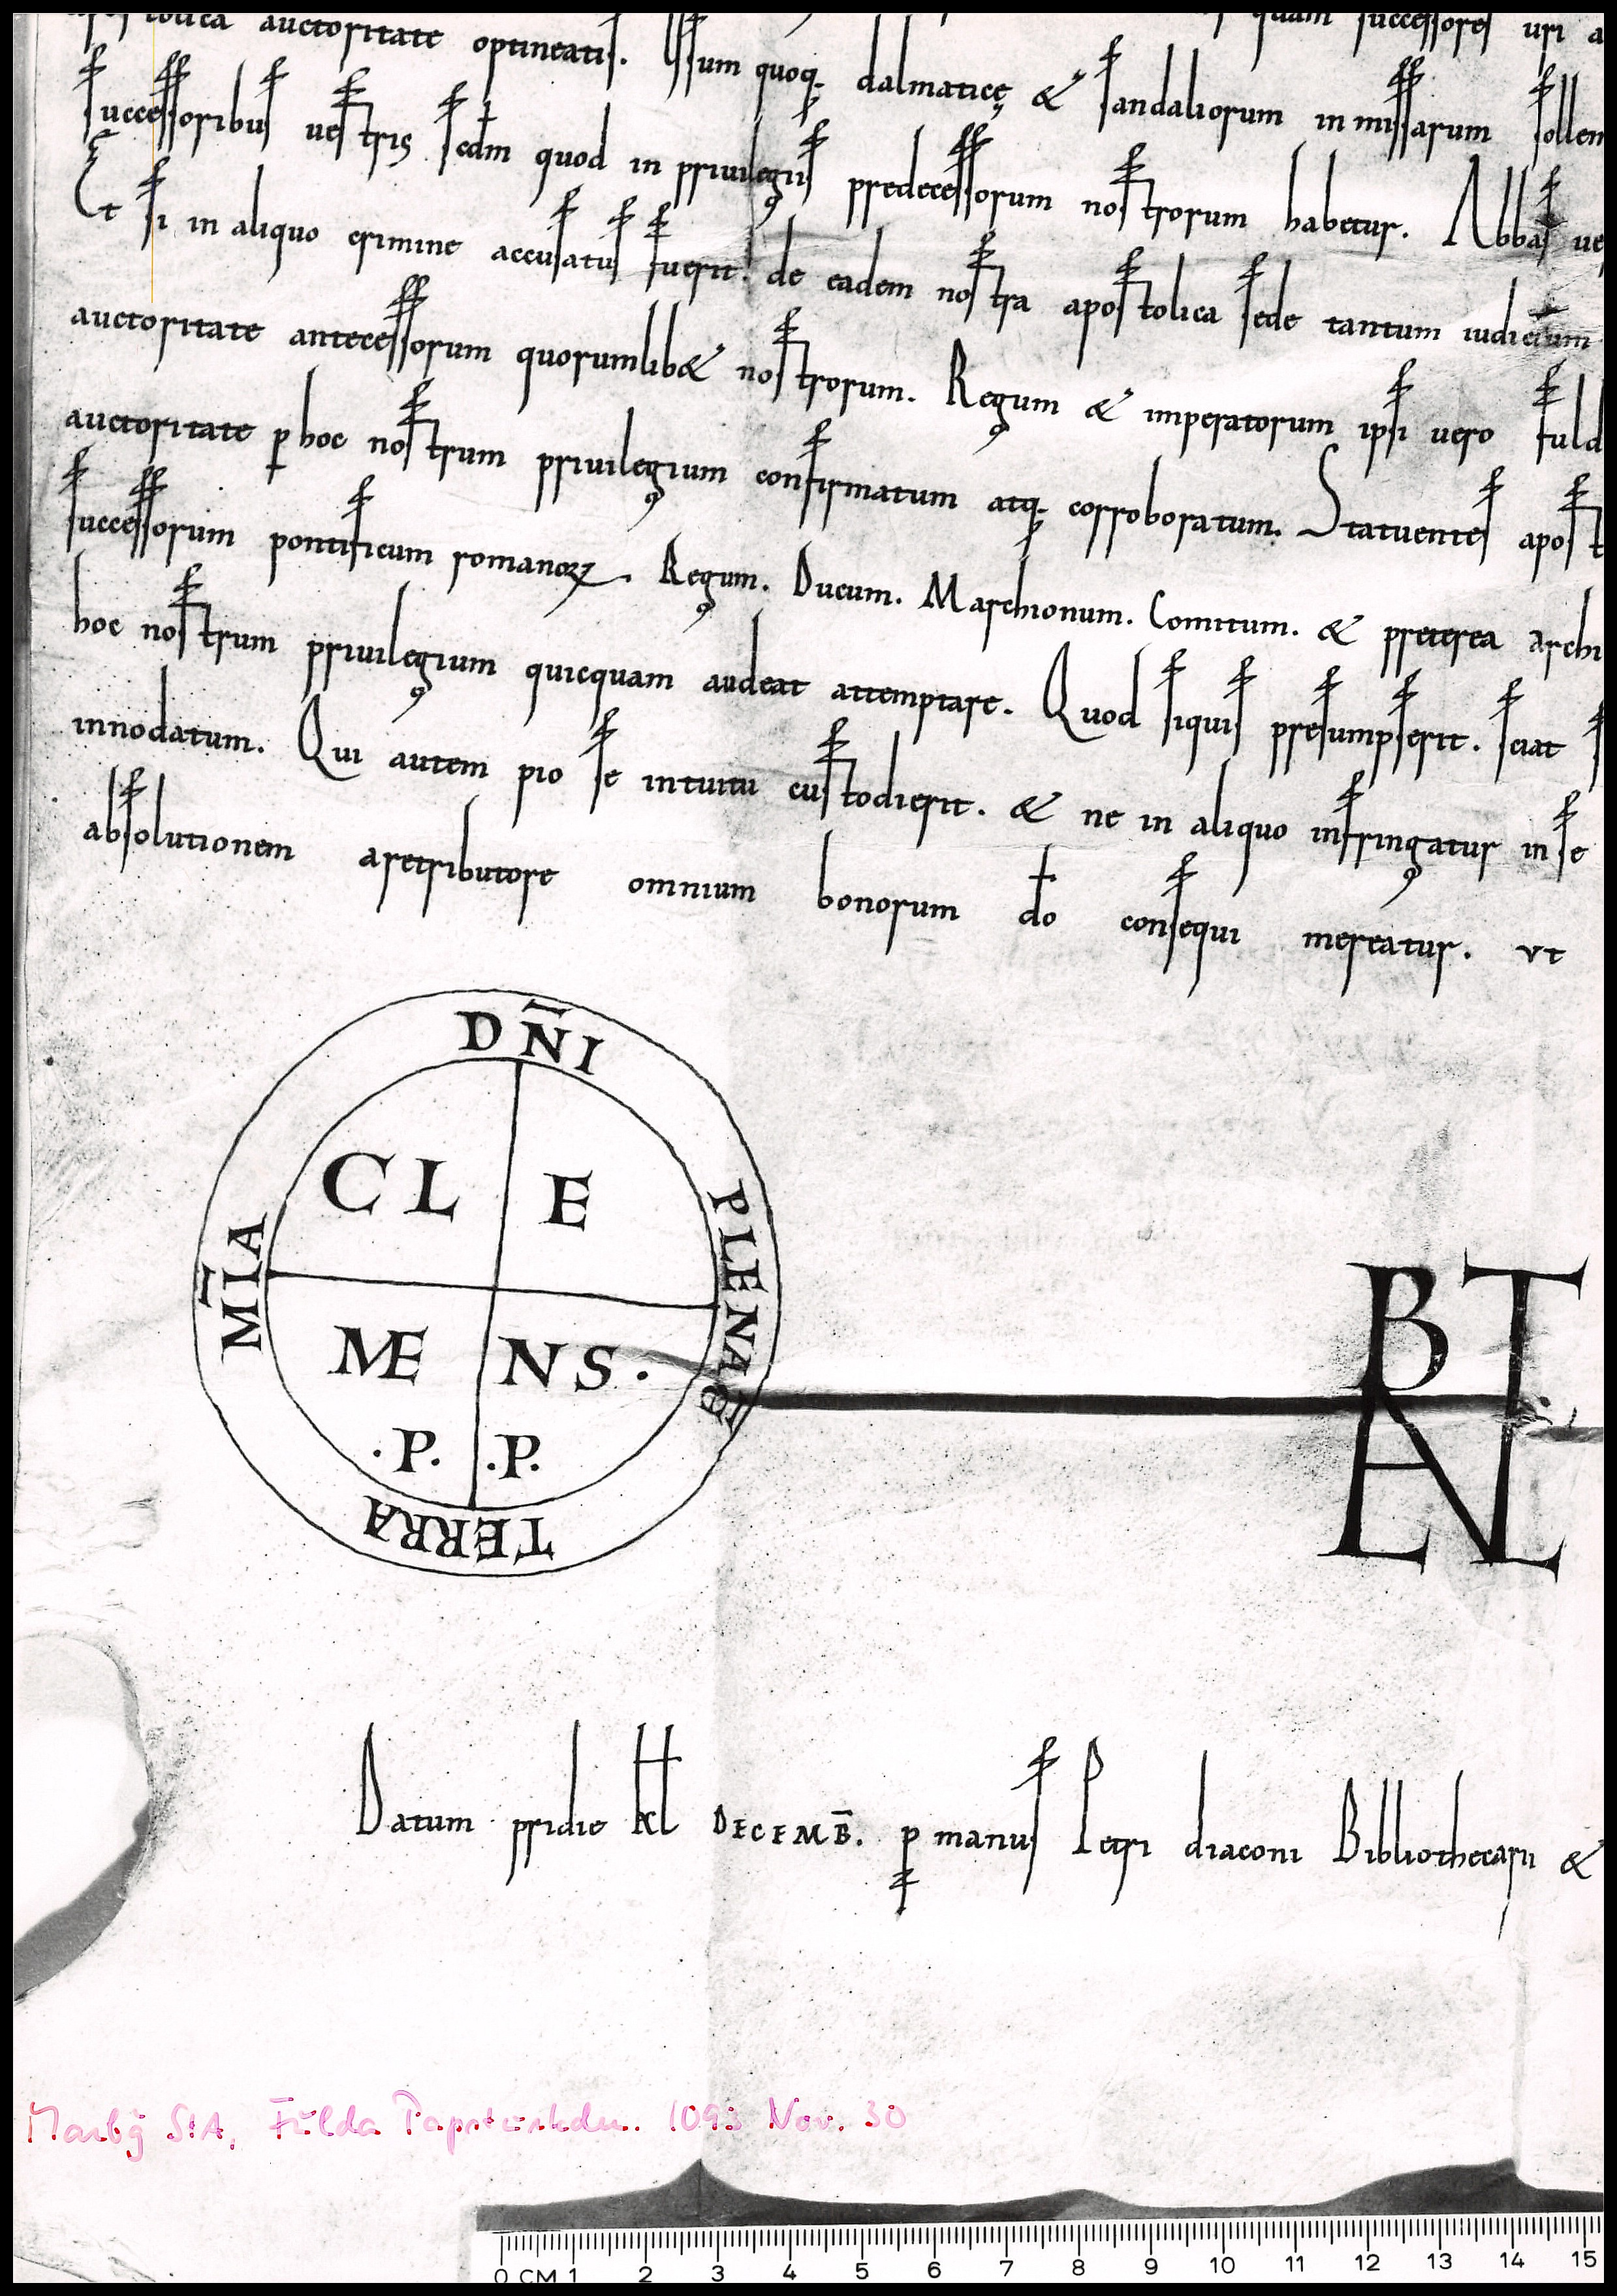 auctoritate optineatis. Usum quoq. dalmaticę & sandaliorum in missarum sollem
successoribus vestris sēdm quod in privilegiis predecessorum nostrorum habetur. Abbas ve
Et si in aliquo crimine accusatus fuerit. de eadem nostra apostolica sede tantum iudicium
auctoritate antecessorum quorumlib& nostrorum. Regum & imperatorum ipsi vero fuld
auctoritate p hoc nostrum privilegium confirmatum atq. corroboratum. Statuentes apost
successorum pontificum romanoꝝ. Regum. Ducum. Marchionum. Comitum. & preterea archi
hoc nostrum privilegium quicquam audeat attemptare. Quod siquis presumpserit. sciat
innodatum. Qui autem pio se intuitu custodierit. & ne in aliquo infringatur in se
absolutionem a retributore omnium bonorum dō consequi mereatur. ut
DÑI PLENA Ē TERRA
M̄IA
CL E
ME NS.
.P. .P.
BT
Datum pridie kl DECEMB̄. p manus Petri diaconi Bibliothecarii &
Marbg StA, Fulda Papsturkdn. 1093 Nov. 30
0 CM 1 2 3 4 5 6 7 8 9 10 11 12 13 14 15